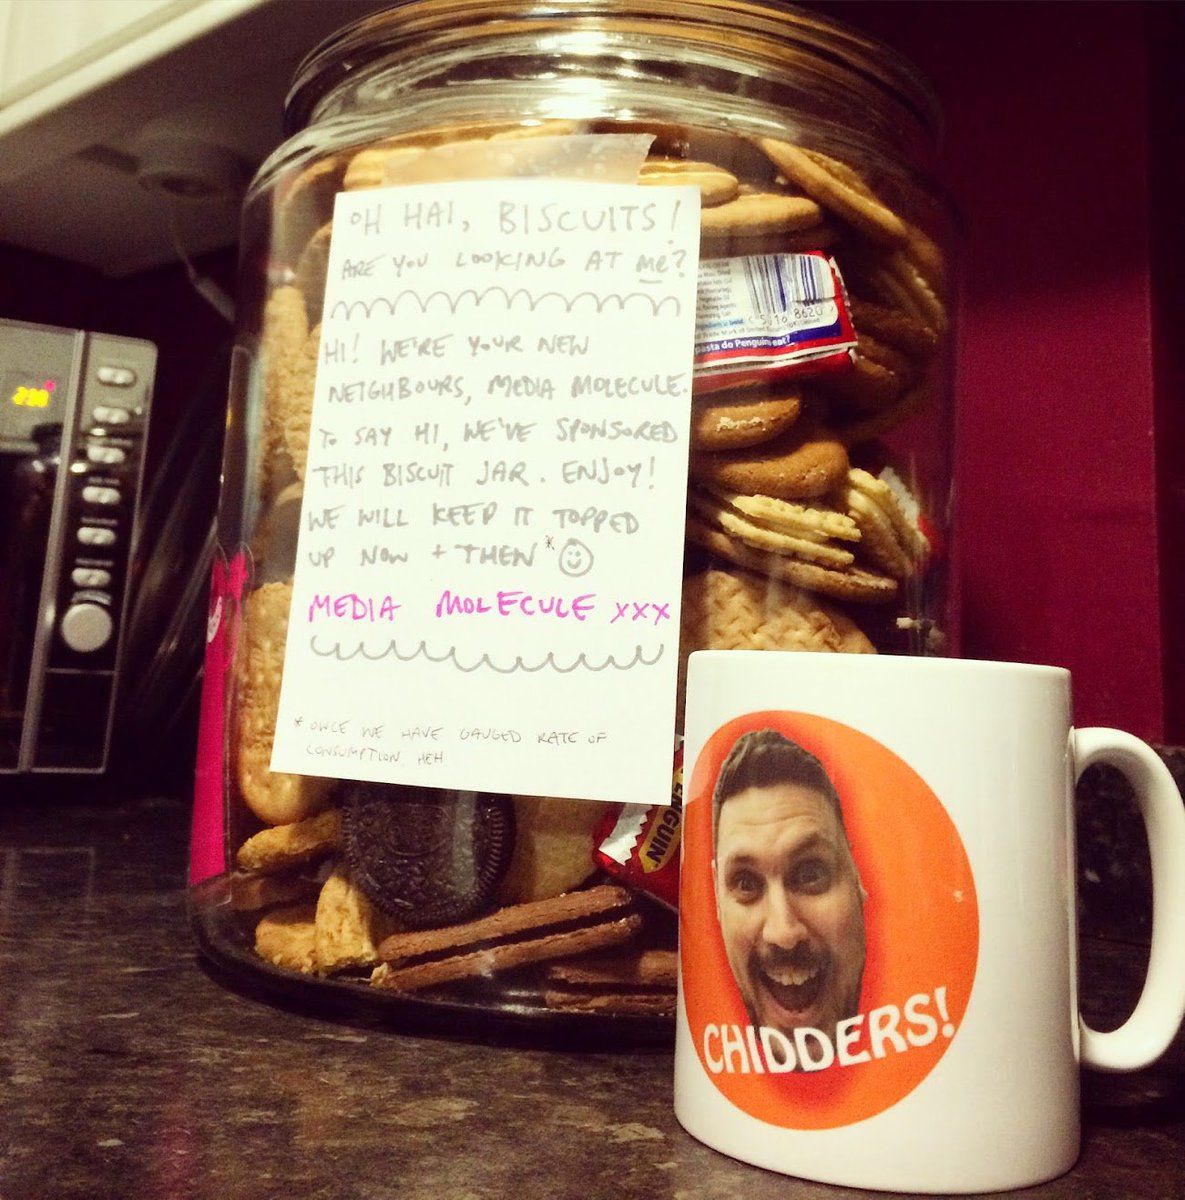 OH HAI, BISCUITS!
ARE YOU LOOKING AT me?
HI! WE'RE YOUR NEW
NEIGHBOURS, MEDIA MOLECULE.
TO SAY HI, WE'VE SPONSORED
THIS BISCUIT JAR. ENJOY!
WE WILL KEEP IT TOPPED
UP NOW + THEN*
MEDIA MOLECULE xxx
* ONCE WE HAVE GAUGED RATE OF
CONSUMPTION, HEH
pasta do Penguins eat?
PENGUIN
CHIDDERS!